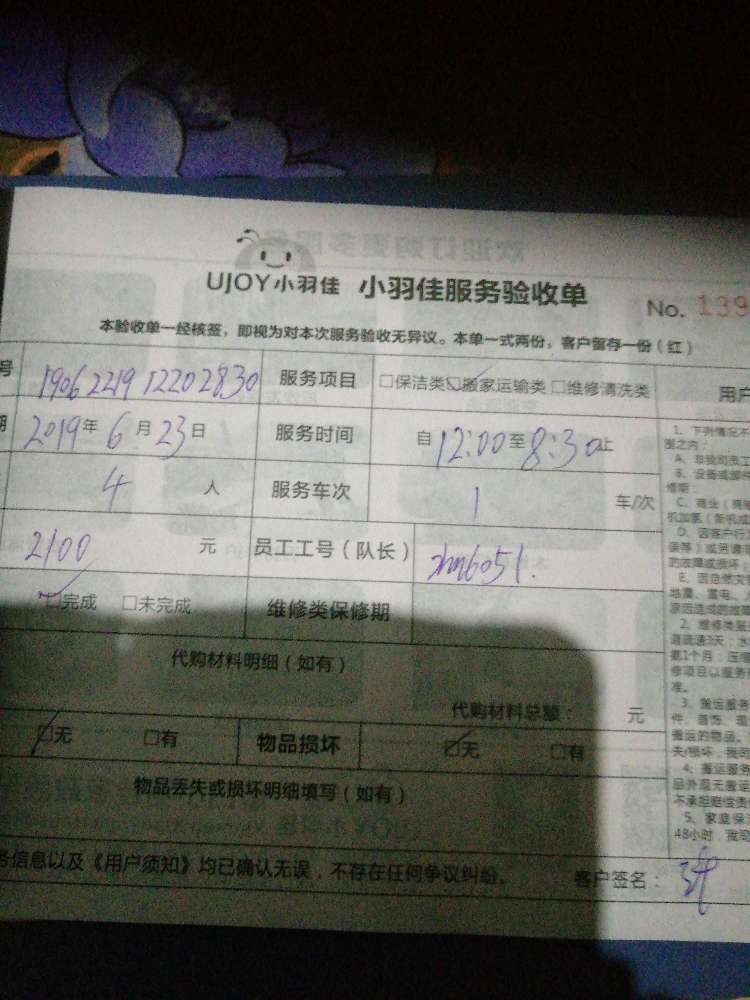 UJOY小羽佳 小羽佳服务验收单
No. 139
本验收单一经核签，即视为对本次服务验收无异议。本单一式两份，客户留存一份（红）
号 1906221912202830 服务项目 □保洁类☑搬家运输类□维修清洗类
期 2019年6月23日 服务时间 自12:00至8:30止
4 人 服务车次 1 车/次
2100 元 员工工号（队长）
☑完成 □未完成 维修类保修期
代购材料明细（如有）
代购材料总额： 元
☑无 □有 物品损坏 ☑无 □有
物品丢失或损坏明细填写（如有）
务信息以及《用户须知》均已确认无误，不存在任何争议纠纷。 客户签名：
用户
1、下列情况不
围之内：
A、非我司员工
C、商业（商
机加氨（新机
D、因客户行
的故障或损坏
E、因自然灾
地震、雷电、
原因造成的故障
2、维修类服
道疏通3天；水
氨1个月；压缩
修项目以服务
准。
3、搬运服务
件、首饰、现
搬运的物品。
失/损坏，我司
4、搬运服务
品外观无搬运
不承担赔偿责
5、家庭保洁
48小时，我司